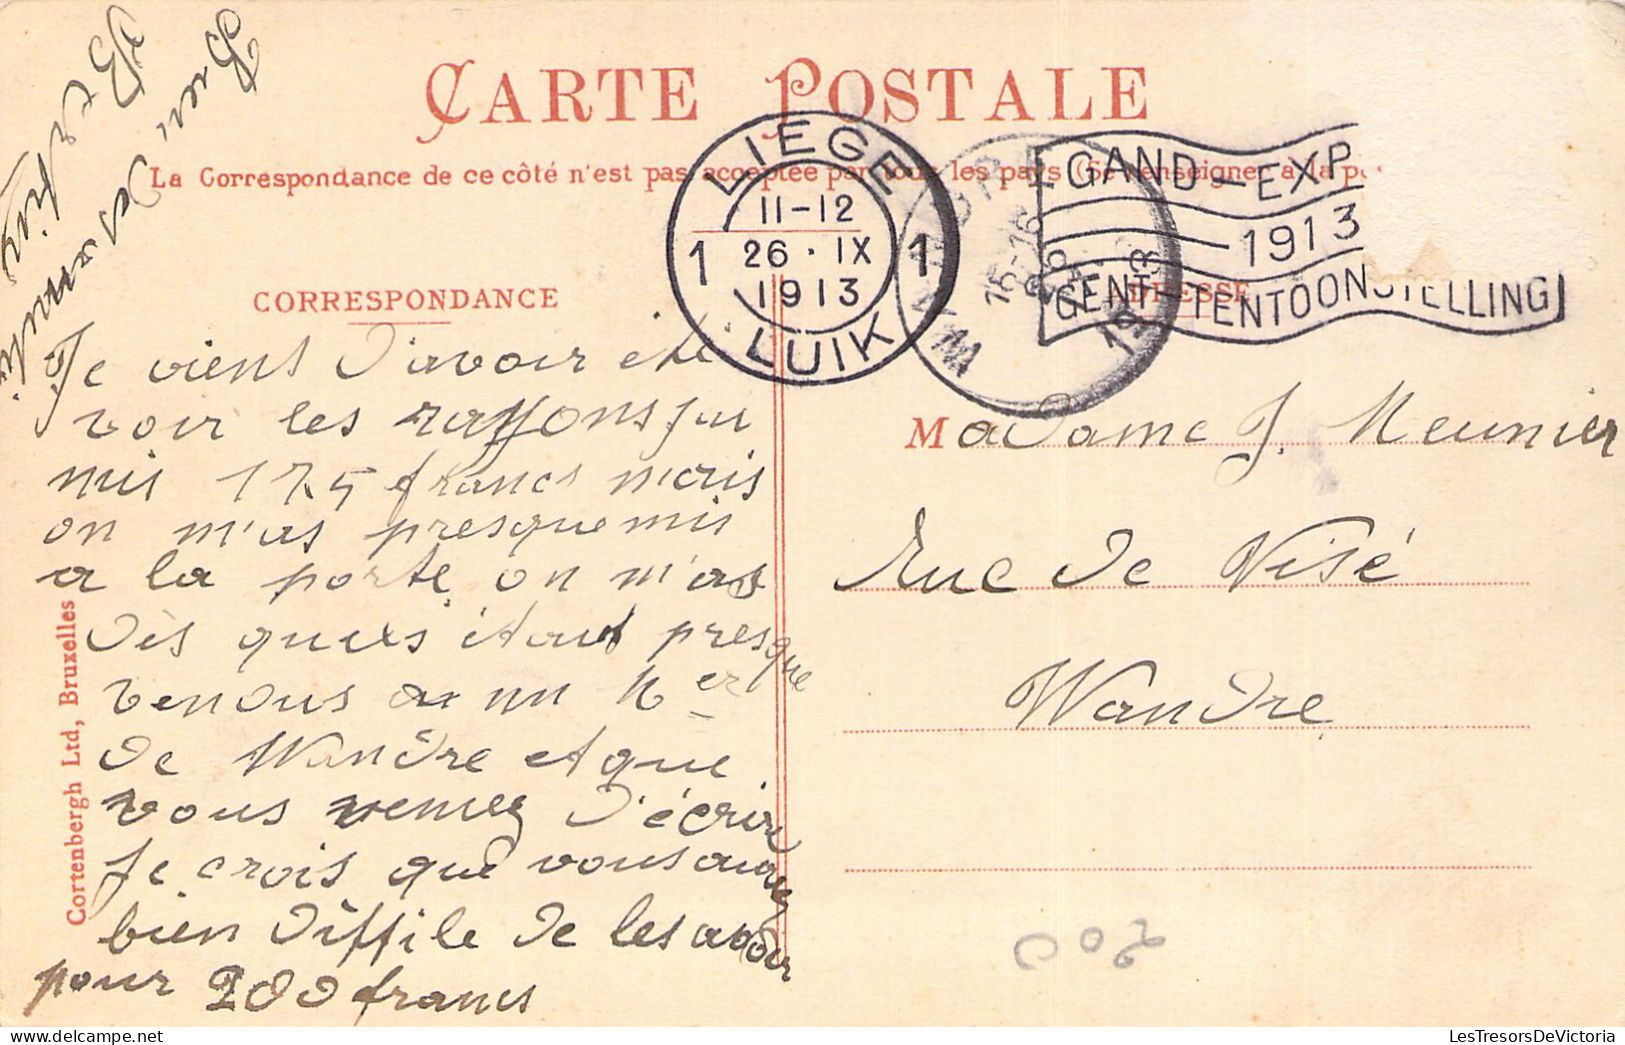 CARTE POSTALE
La Correspondance de ce côté n'est pas acceptée par tous les pays (Se renseigner à la p
LIEGE
11-12
1 26 · IX 1
1913
LUIK
WANDRE
15-16
1913
GAND-EXP
1913
GENT-TENTOONSTELLING
CORRESPONDANCE
ADRESSE
Je viens d'avoir été
voir les rayons j'ai
mis 175 francs mais
on m'as presque mis
a la porte on m'as
dis qu'ils étaut presque
venous a un Mer
de Wandre et que
vous venez d'écrir
Je crois que vous aurez
bien diffile de les avoir
pour 200 francs
Madame J. Meunier
Rue de Visé
Wandre
Cortenbergh Ltd, Bruxelles
200
LesTresorsDeVictoria.com